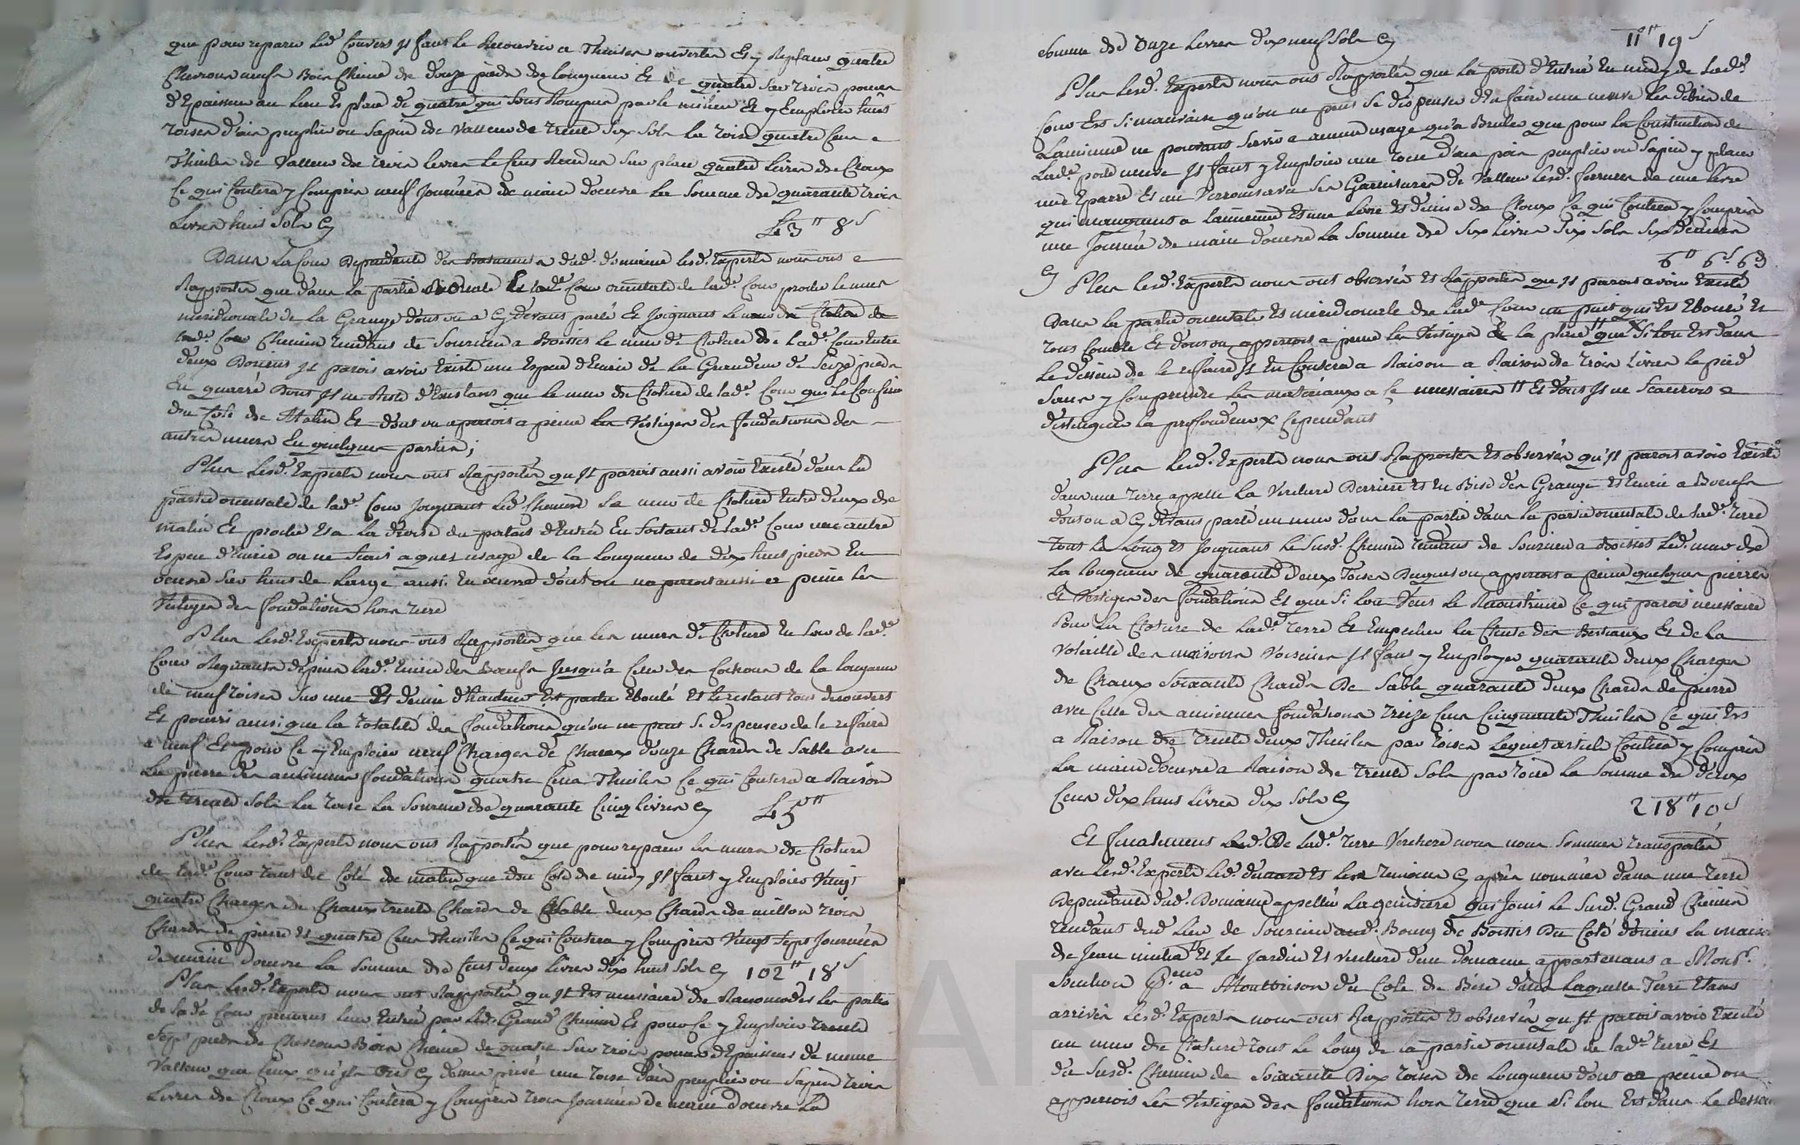 que pour reparer led. Couvert Jl faut le Recouvrir a Thuiles ouvertes Et y Replacer quatre
Chevrons neufs Bois Chene de douze pieds de longueur Et de quatre sur trois pouces
d'Epaisseur au lieu Et place de quatre qui sont Rompus par le milieu Et y Emploier huit
toises d'ais peuplie ou Sapin de valleur de trente six sols la toise quatre Cent
Thuiles de valleur de trois livres le Cent Rendue sur place quatre livres de Cloux
Ce qui Coutera y Compris neuf Journées de main d'œuvre la somme de quarante trois
Livres huit sols Cy 43 ₶ 8 s
Dans la Cour Dependente des Batiments dud. domaine lesd. Experts nous ont
Rapportés que dans la partie orientale de lad. Cour proche le mur
meridionale de la Grange dont on a Cy devant parlé Et Joignant le mur de Cloture de
lad. Cour Chemin tendant de Sourcieu a Boisset le mur de Cloture de lad. Cour Entre
deux Jl parois avoir Existé une Espece d'Ecurie de la Grandeur de Seize pieds
En quarré Dont Jl ne Reste d'Existans que le mur de Cloture de lad. Cour qui le Confine
du Coté de Matin Et dont on apperçoit a peine les Vestiges des fondations des
autres murs En quelques parties;
Plus lesd. Experts nous ont Rapportés qu'Jl parois aussi avoir Existé dans la
partie orientale de lad. Cour Joignant led. Chemin le mur de Cloture Entre deux de
matin Et proche Et a la droite du portail d'Entrée En sortant de lad. Cour une autre
Espece d'Ecurie on ne sçait a quel usage de la longueur de dix huit pieds En
œuvre sur huit de large aussi En œuvre dont on apperçoit aussi a peine les
Vestiges des fondations hors terre
Plus lesd. Experts nous ont Rapportés que les murs de Cloture En Soir de lad.
Cour Regnants depuis lad. Ecurie des bœufs Jusqu'a Celle des Cochons de la longueur
de neuf toises sur une Et demie d'hauteur Est partie Eboulé Et le restant tous decouvert
Et pourri ainsi que la totalité des fondations qu'on ne peut se dispenser de le refaire
a neuf Et pour Ce y Emploier neuf Charges de Chaux douze Chards de Sable avec
la pierre des anciennes fondations quatre Cent Thuiles Ce qui Coutera a Raison
de trente sols la toise la Somme de quarante Cinq livres Cy 45 ₶
Plus lesd. Experts nous ont Rapportés que pour reparer les murs de Cloture
de lad. Cour tant de Coté de matin que du Coté de midy Jl faut y Emploier vingt
quatre Charges de Chaux trente Chards de Sable deux Chards de millon trois
Chards de pierre Et quatre Cent Thuiles Ce qui Coutera y Compris vingt sept Journées
de main d'œuvre la somme de Cent deux livres dix huit sols Cy 102 ₶ 18 s
Plus lesd. Experts nous ont Rapportés qu'Jl Est necessaire de Racommoder les portes
de lad. Cour prenants leur Entrée par led. Grand Chemin Et pour Ce y Emploier trente
sept pieds de Chevrons Bois Chene de quatre sur trois pouces d'Epaisseur de meme
valleur que Ceux qu'Jls ont Cy devant prisé une toise d'ais peuplie ou Sapin trois
Livres de Cloux Ce qui Coutera y Compris trois Journées de main d'œuvre la
Somme de Onze Livres dix neuf sols Cy 11 ₶ 19 s
Plus lesd. Experts nous ont Rapportés que la porte d'Entrée En midy de lad.
Cour Est si mauvaise qu'on ne peut se dispenser d'En faire une neuve les debris de
L'ancienne ne pouvant servir a aucun usage qu'a Bruler que pour la Construction de
lad. porte neuve Jl faut y Emploier une toise d'ais pin peuplie ou Sapin y placer
une Eparre Et un Verrouil avec ses Garnitures de valleur lesd. ferrures de une livre
qui manquent a l'ancienne Et une livre Et demie de Cloux Ce qui Coutera y Compris
une Journée de main d'œuvre la Somme de Six livres Six sols Six deniers
Cy 6 ₶ 6 s 6 d
Plus lesd. Experts nous ont observés Et Rapportés que Jl parois avoir Existé
Dans la partie orientale Et meridionale de lad. Cour un puit qui Est Eboulé Et
tous Comblé Et dont on apperçois a peine les Vestiges Et la place que si lon Est dans
Le dessein de le refaire Jl En Coutera a Raison a Raison de trois livres le pied
Sans y Comprendre les materiaux a Ce necessaires Et dont Jls ne Scauroit
distinguer la profondeur Cependant
Plus lesd. Experts nous ont Rapportés Et observés qu'Jl parois avoir Existé
dans une terre appellé la Verchere Derriere Et En Bise des Grange Et Ecurie a Boeufs
dont on a Cy devant parlé un mur dans la partie dans la partie orientale de lad. terre
tout le long Et Joignant le Susd. Chemin tendant de Sourcieu a Boisset led. mur de
la longueur de quarante deux toises Duquel on apperçois a peine quelques pierres
Et Vestiges des fondations Et que si lon veut le Reconstruire Ce qui parois necessaire
Pour la Cloture de lad. terre Et Empecher la Chute des Bestiaux Et de la
Volaille des maisons Voisines Jl faut y Employer quarante deux Charges
de Chaux Soixante Chards De Sable quarante deux Chards de pierre
avec Celle des anciennes fondations treize Cent Cinquante Thuiles Ce qui Est
a Raison de trente deux Thuiles par toises Lequel article Coutera y Compris
la main d'œuvre a Raison de trente sols par toise la somme de deux
Cent dix huit livres dix sols Cy 218 ₶ 10 s
Et finalement De lad. terre Verchere nous nous sommes transportés
avec lesd. Experts led. Et les temoins Cy après nommés dans une terre
Dependante dud. Domaine appellée la genistiere qui Joint le Susd. Grand Chemin
tendant dud. Lieu de Sourcieu aud. Bourg de Boisset Du Coté de la maison
de Jean Et le Jardin Et verchere d'un domaine appartenant a Monsr.
a Montbrison du Coté de Bise dans laquelle terre Etant
arrivés lesd. Experts nous ont Rapportés Et observés qu'Jl parois avoir Existé
un mur de Cloture tout le long de la partie orientale de lad. terre Et
du Susd. Chemin de Soixante Dix toises de longueur dont a peine on
apperçois les Vestiges des fondations hors terre que si lon Est dans le dessein